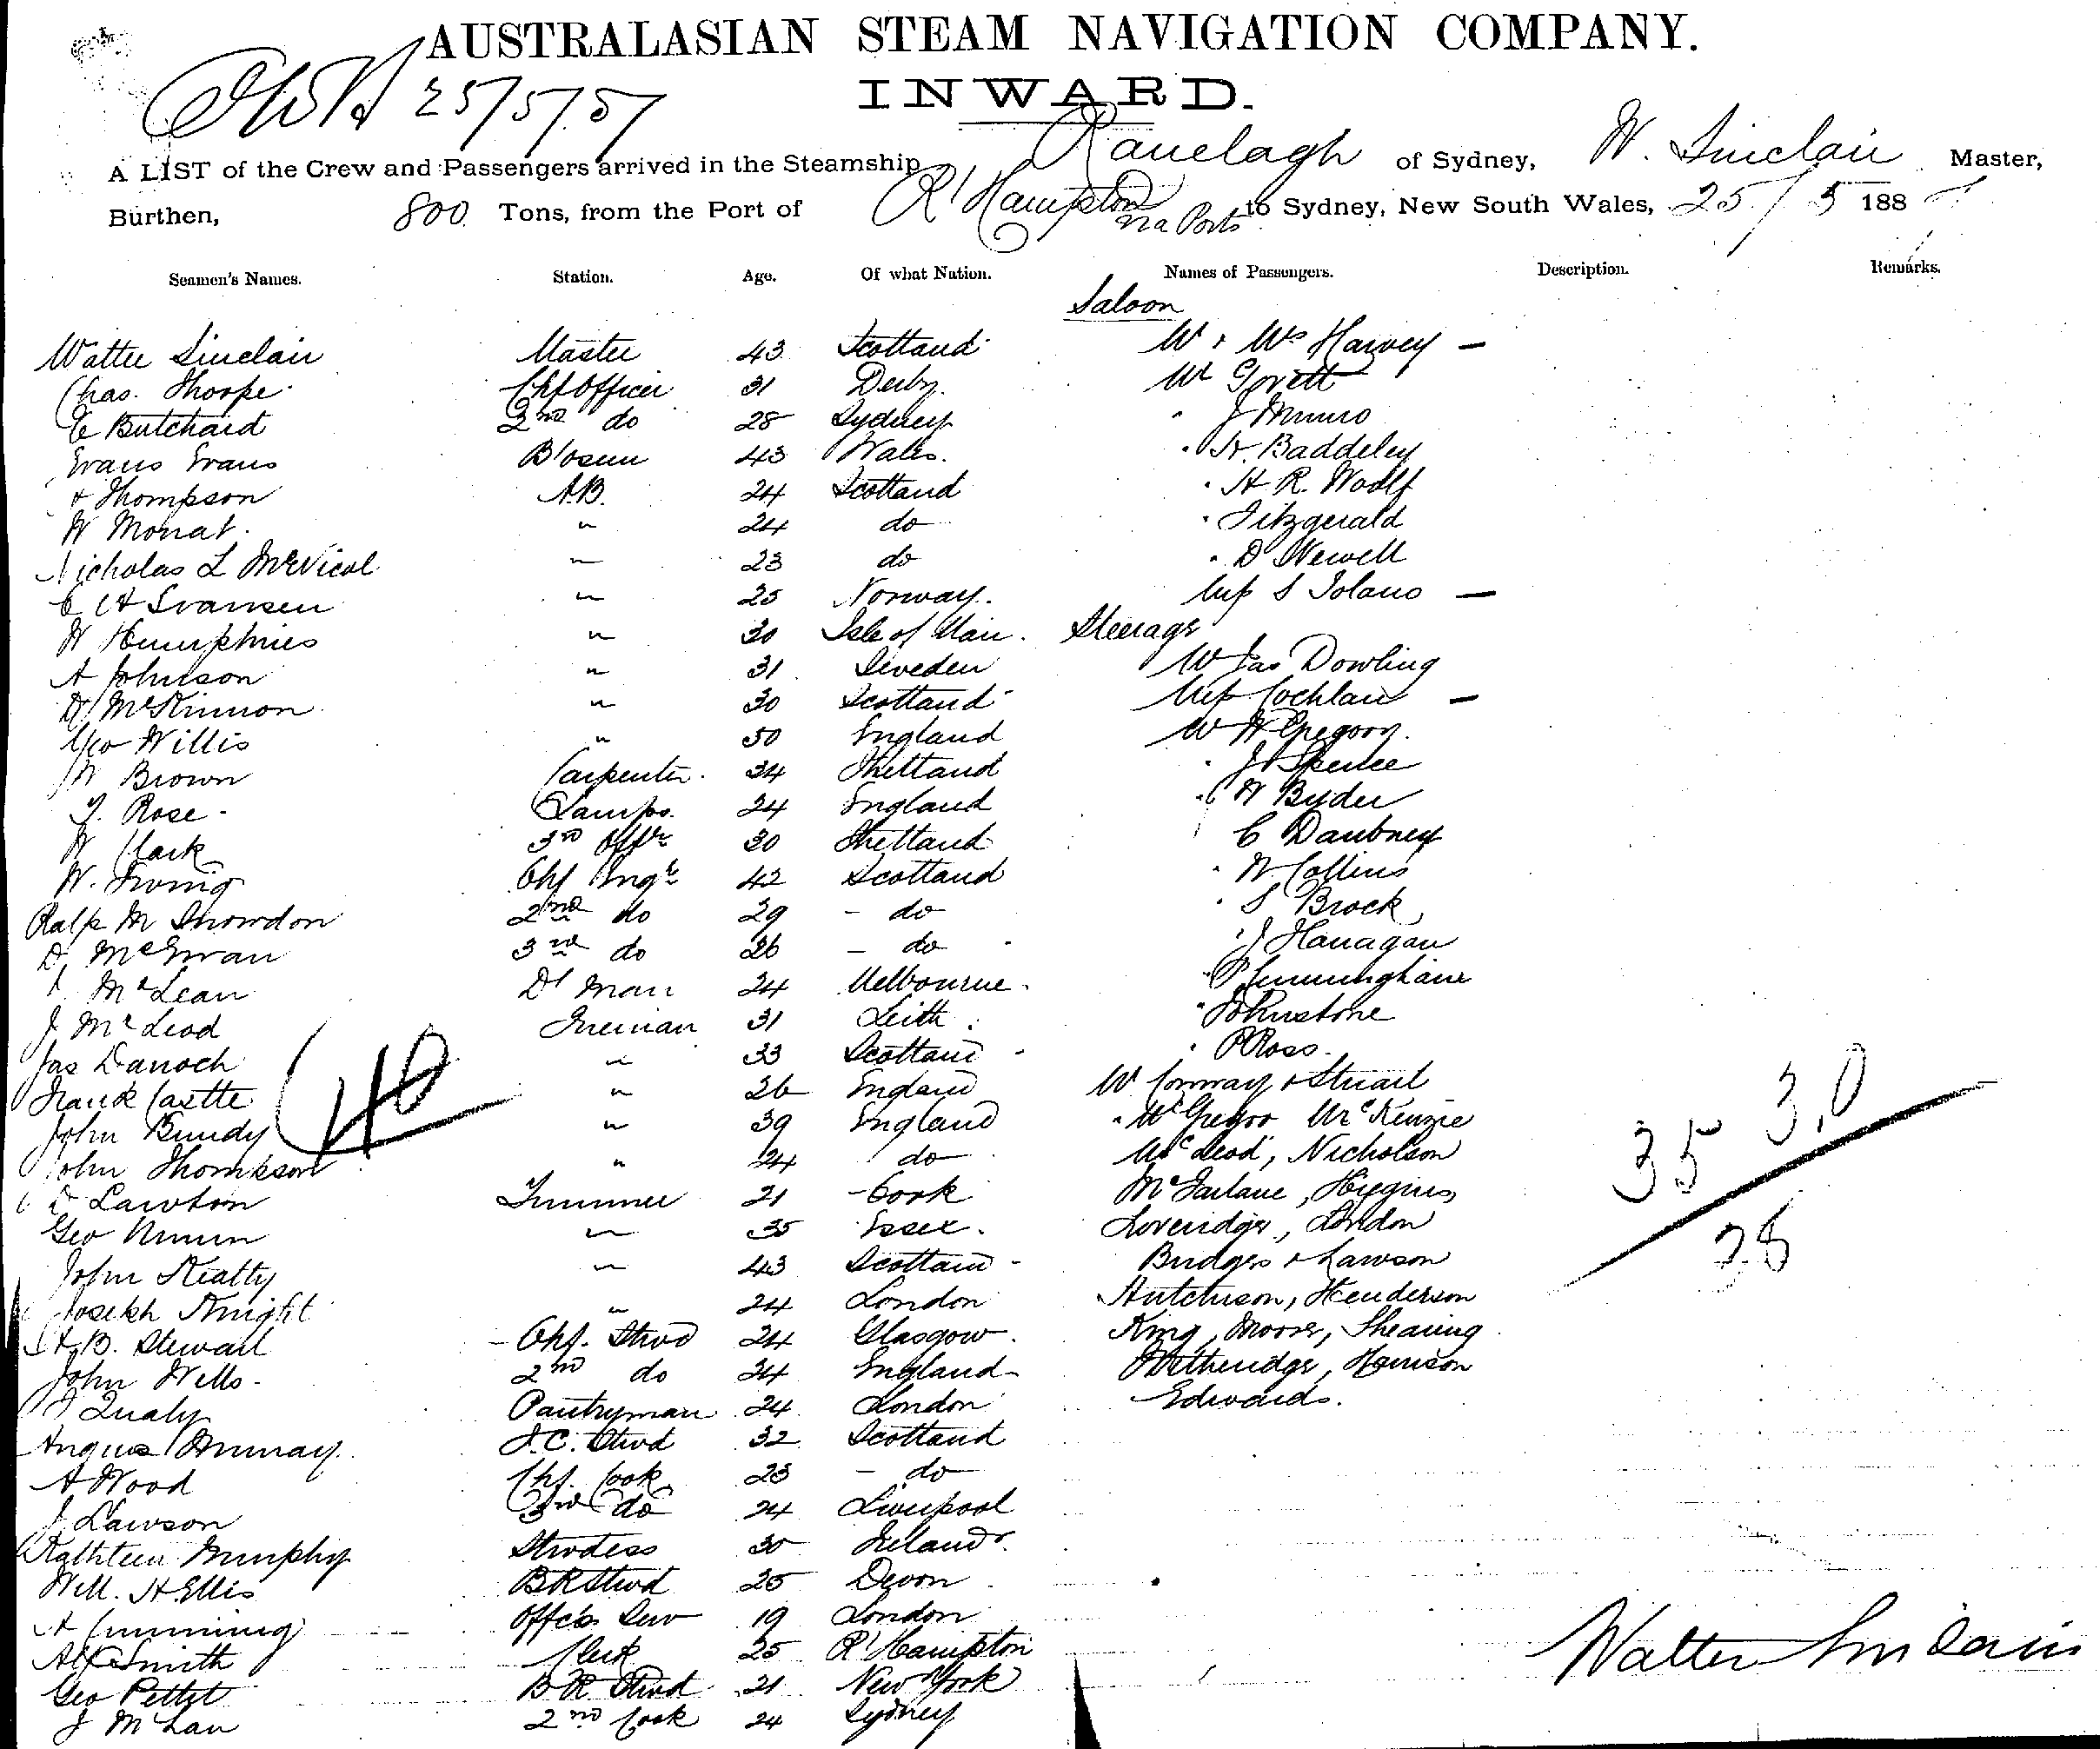 AUSTRALASIAN STEAM NAVIGATION COMPANY.
25/5/87
INWARD.
A LIST of the Crew and Passengers arrived in the Steamship Ranelagh of Sydney, W. Sinclair Master,
Burthen, 800 Tons, from the Port of R'Hampton via Ports to Sydney, New South Wales, 25/5 188
Seamen's Names. Station. Age. Of what Nation. Names of Passengers. Description. Remarks.
Saloon
Walter Sinclair Master 43 Scotland Mr & Mrs Harvey —
Chas. Thorpe Chf Officer 31 Derby Mr Govett
E Butchard 2nd do 28 Sydney " J Munro
Evans Evans B'osun 43 Wales. " Baddeley
Thompson A.B. 24 Scotland " H. R. Woolf
W Monat. " 24 do " Fitzgerald
Nicholas L McVical " 23 do " D Newell
C A Svansen " 25 Norway. Miss S Solano —
W Humphries " 30 Isle of Man. Steerage
A Johnson " 31 Sweden Mr Jas Dowling
D McKinnon " 30 Scotland Miss Cochlan —
Geo Willis " 50 England Mr H Gregory.
W Brown Carpenter. 34 Shetland " J Spence
T. Rose Lamps. 24 England " W Byder
W Clark 3rd Offr 30 Shetland C Daubney
W. Irving Chf Engr 42 Scotland " W Collins
Ralp M Snowdon 2nd do 29 - do " S Brock
D. McEwan 3rd do 26 - do " J Flanagan
McLean D' man 24 Melbourne " P Cunninghame
J. McLeod Fireman 31 Leith " Johnstone
Jas Darroch " 33 Scotland " P Ross
Frank Castte " 26 England Mr Conway & Stuart
John Bundy " 39 England " McGregor McKenzie
John Thompson " 24 do McLeod, Nicholson
D Lawton Trimmer 21 Cork McFarlane, Higgins
Geo Nunn " 35 Essex. Loveridge, London
John Keatty " 43 Scotland Bridges & Lawson
Joseph Knight " 24 London Hutchison, Henderson
B. Stewart Chf. Stwd 24 Glasgow. King, Moore, Shearing
John Wells 2nd do 34 England Wetheridge, Harrison
J Qualy Pantryman 24 London Edwards.
Angus Murray F.C. Stwd 32 Scotland
A Wood Chf. Cook 23 - do
J. Lawson 3rd do 24 Liverpool
Kathleen Murphy Stwdess 30 Ireland.
Will. H Ellis B R Stwd 25 Devon
A Cumming Offcs Serv 19 London
Alf Smith Clerk 25 R'Hampton
Geo Pettet B R Stwd 21 New York
J McLan 2nd Cook 24 Sydney
40
35 30
25
Walter Sinclair